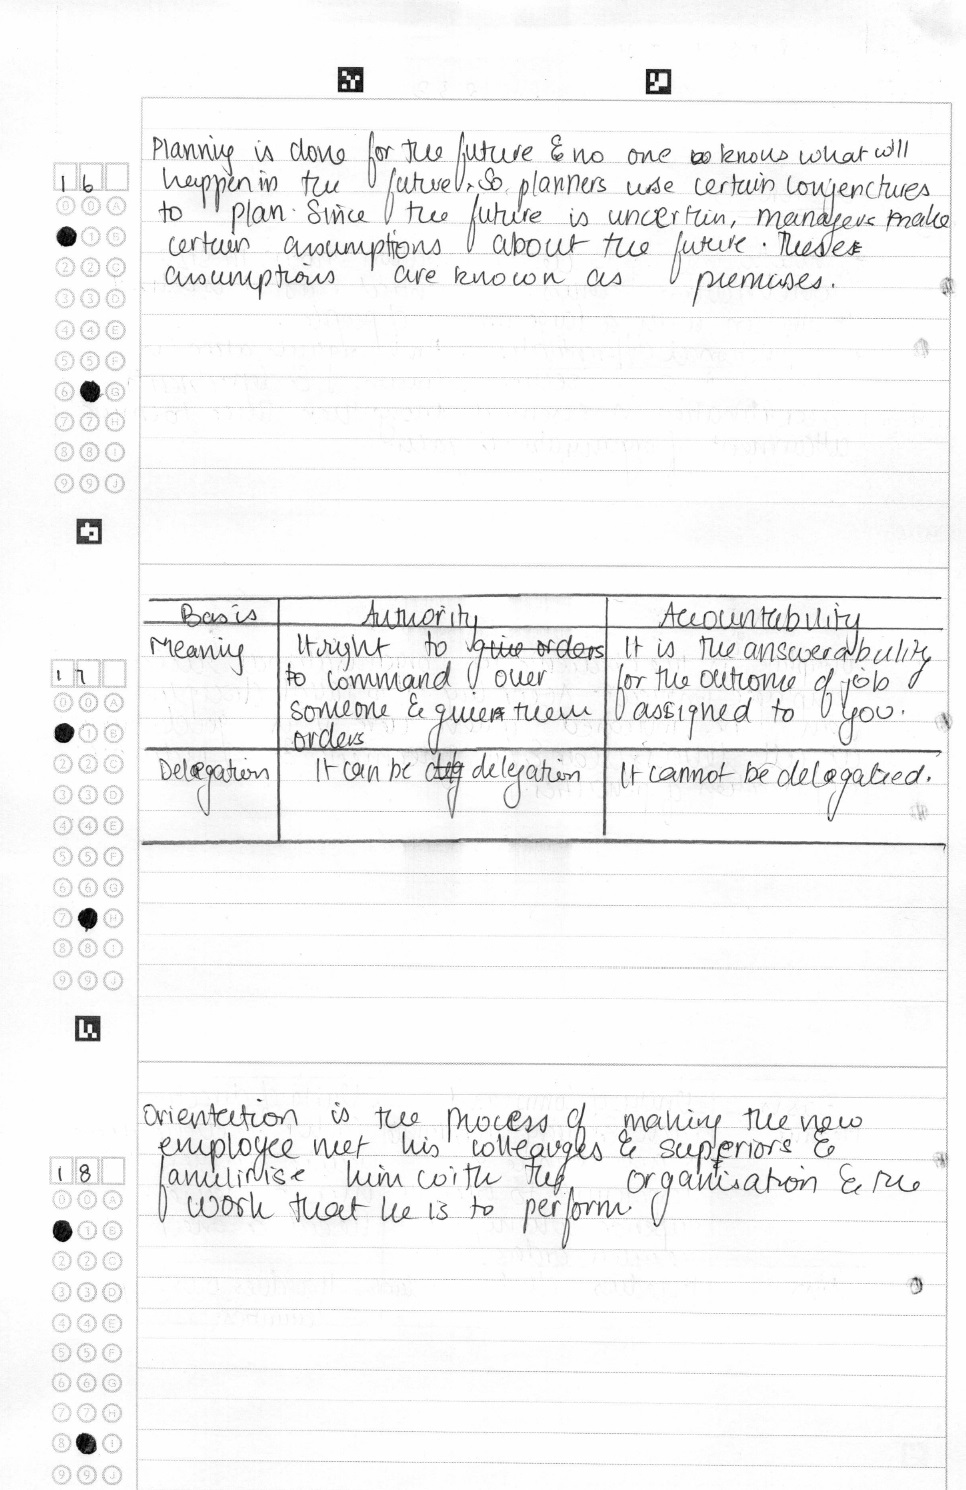 Planning is done for the future & no one knows what will
16
happen in the future. So planners use certain conjenctures
to plan. Since the future is uncertin, managers make
certain assumptions about the future. These
assumptions are known as premises.
Basis Authority Accountability
Meaning It right to give orders It is the answerability
17
to command over for the outcome of job
someone & given them assigned to you.
orders
Delegation It can be delegation It cannot be delegated.
Orientation is the process of making the new
employee meet his colleauges & superiors &
18
familirise him with the organisation & the
work that he is to perform.